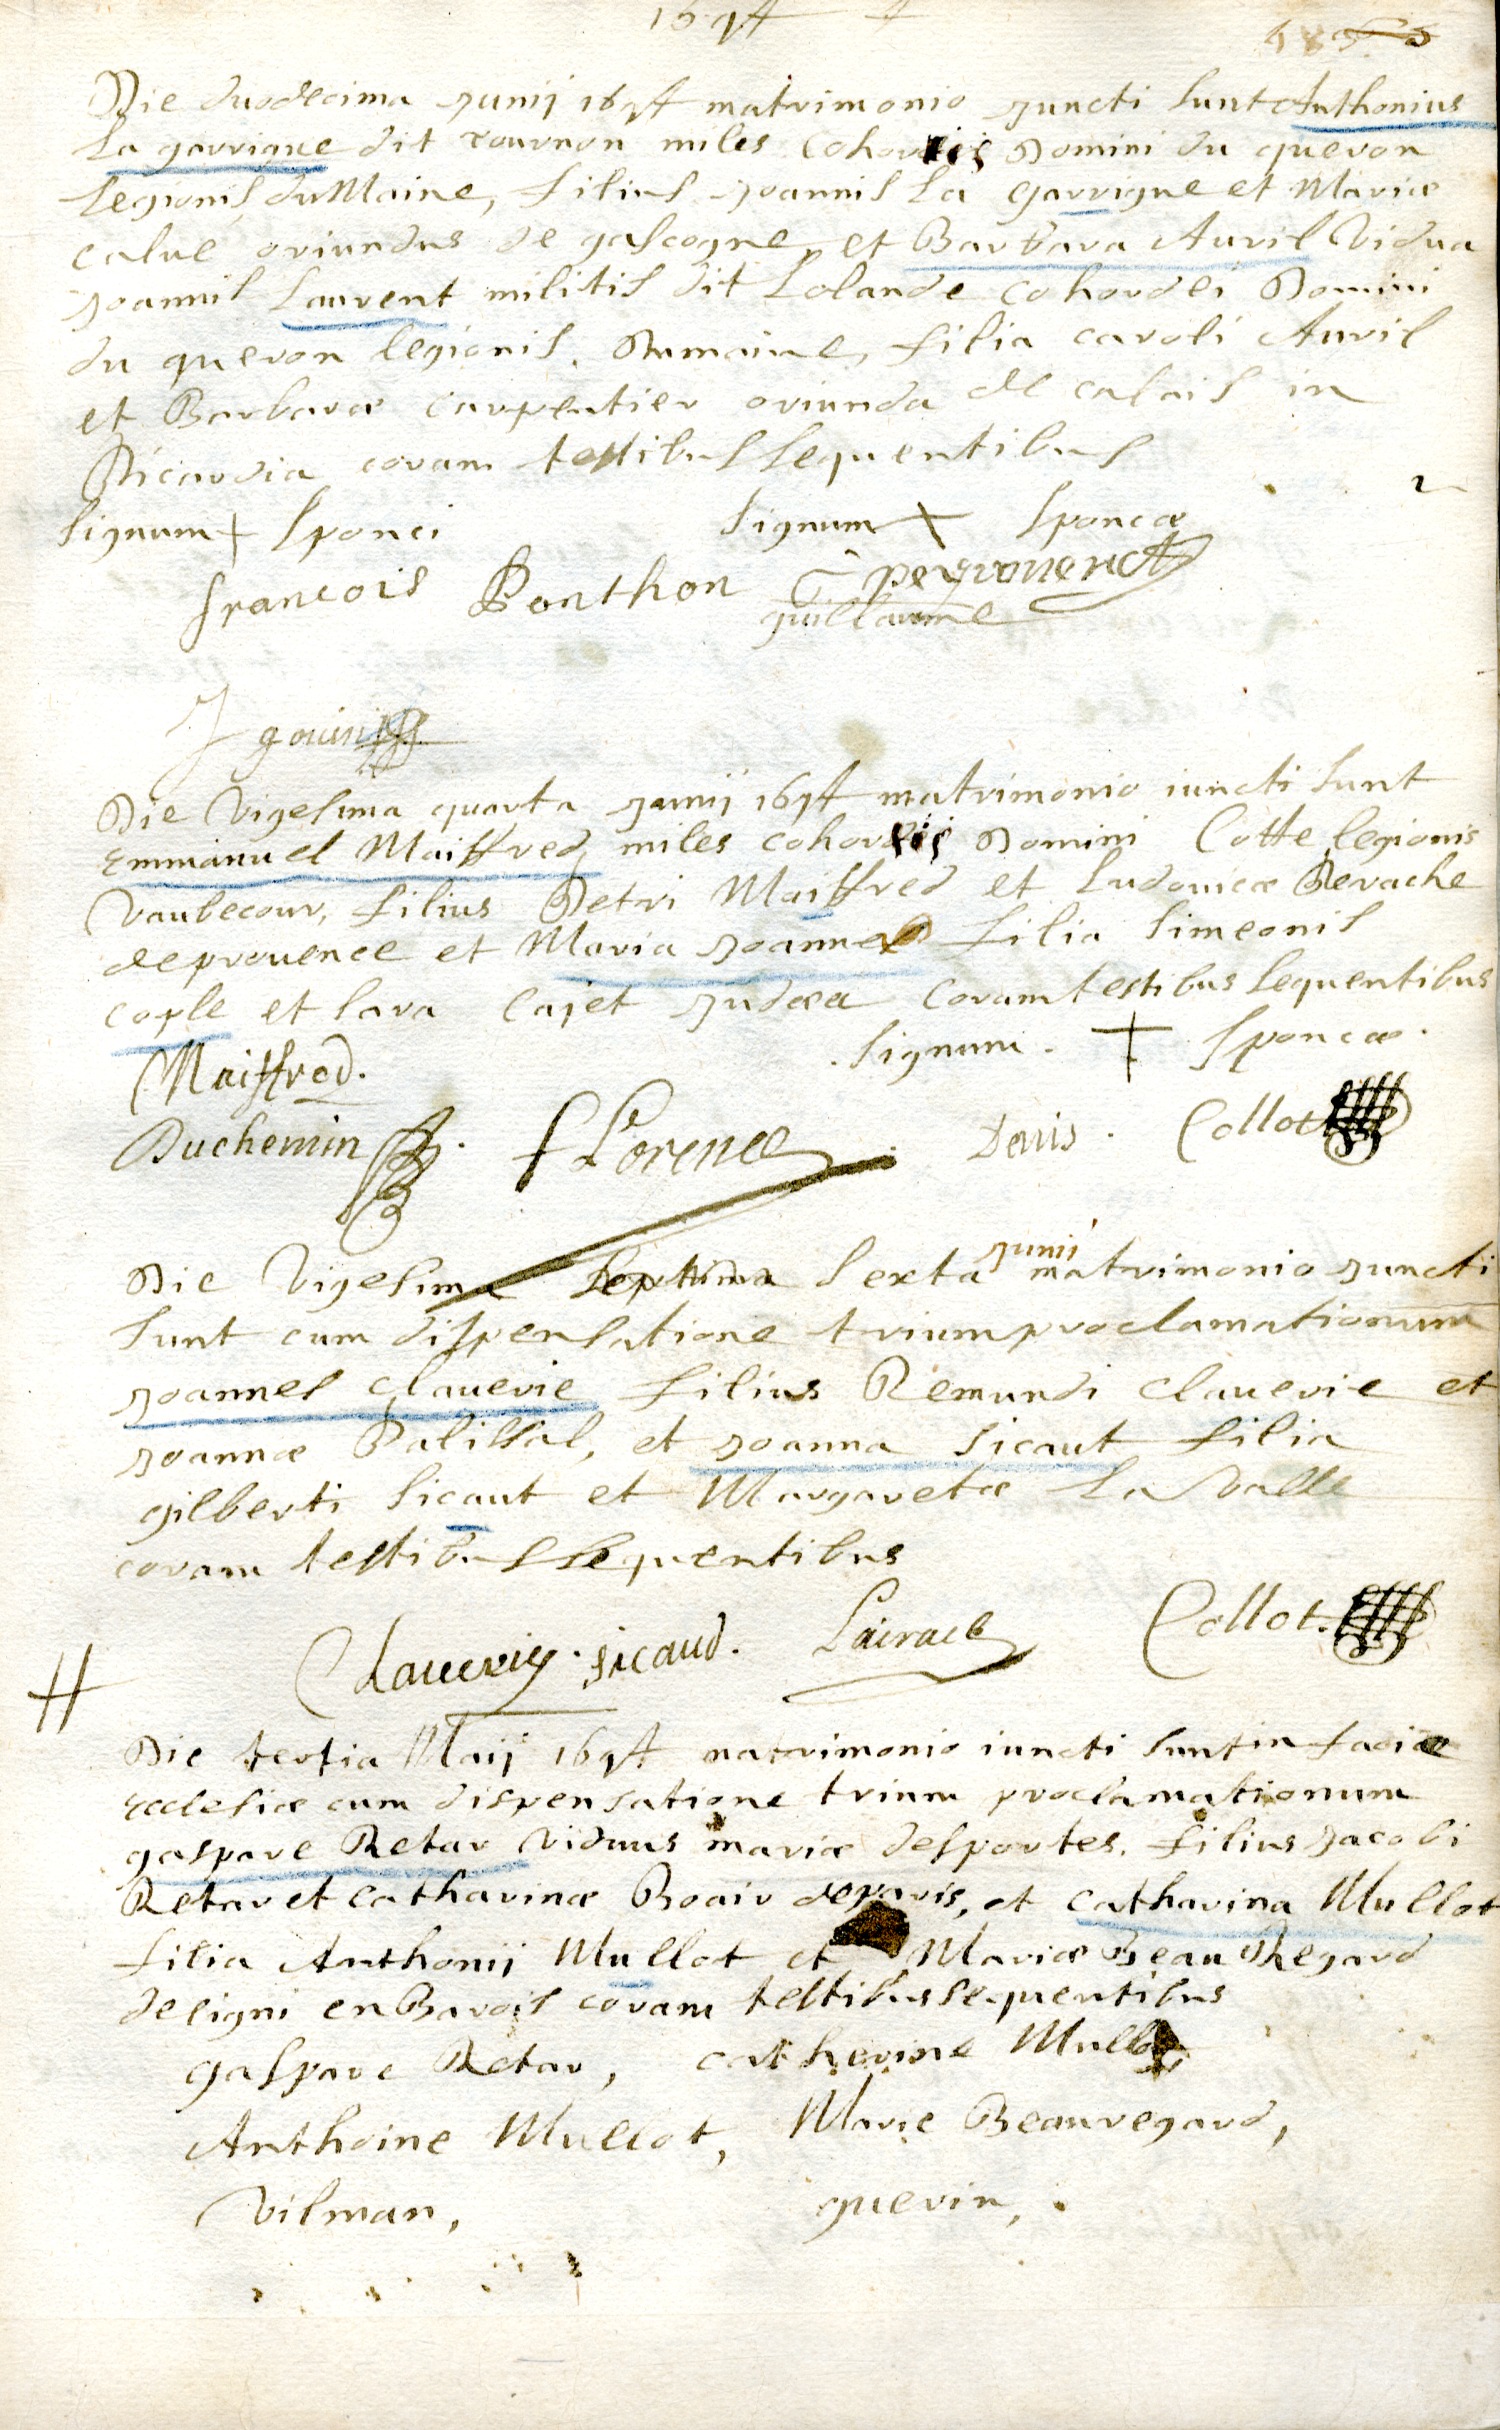 1694
Die duodecima Junij 1694 matrimonio Juncti sunt Anthonius
La garrigue dit tournon miles cohortis Domini du queron
legionis du Maine, filius Joannis La garrigue et Mariæ
calue oriundus de gascogne et Barbara Auril Vidua
Joannis Laurent militis dit Lolande cohordis Domini
du queron legionis Dumaine, filia caroli Auril
et Barbaræ carpentier oriunda de calais in
Picardia coram testibus sequentibus
signum + sponsi signum + sponsæ
françois Ponthon
guillaume
J gouin
Die Vigesima quarta Junij 1694 matrimonio iuncti sunt
Emmanuel Maiffred, miles cohortis Domini Cotte legionis
Vaubecour, filius Petri Maiffred et Ludouicæ Revache
de prouence et Maria Joanne filia simeonis
cople et sara Cajet Judæa coram testibus sequentibus
Maiffred. signum + sponsæ
Duchemin f Lorence Denis Collot
Die Vigesima septima sexta Junii matrimonio Juncti
sunt cum dispensatione trium proclamationum
Joannes Clauerie filius Remundi Clauerie et
Joannæ Palissal, et Joanna sicaut filia
gilberti sicaut et Margaretæ La Valle
coram testibus sequentibus
Clauerie sicaud. Lairace Collot
Die tertia Maij 1694 matrimonio iuncti sunt in faciæ
Ecclesiæ cum dispensatione trium proclamationum
gaspare Retar Viduus mariæ desportes. filius Jacobi
Retar et catharinæ Boair de paris, et catharina Mullot
filia Anthonij Mullot et Mariæ Beau Regard
de ligni en Barois coram testibus sequentibus
gaspare Retar, catherine Mullot,
Anthoine Mullot, Marie Beauregard,
Vilman, guerin,